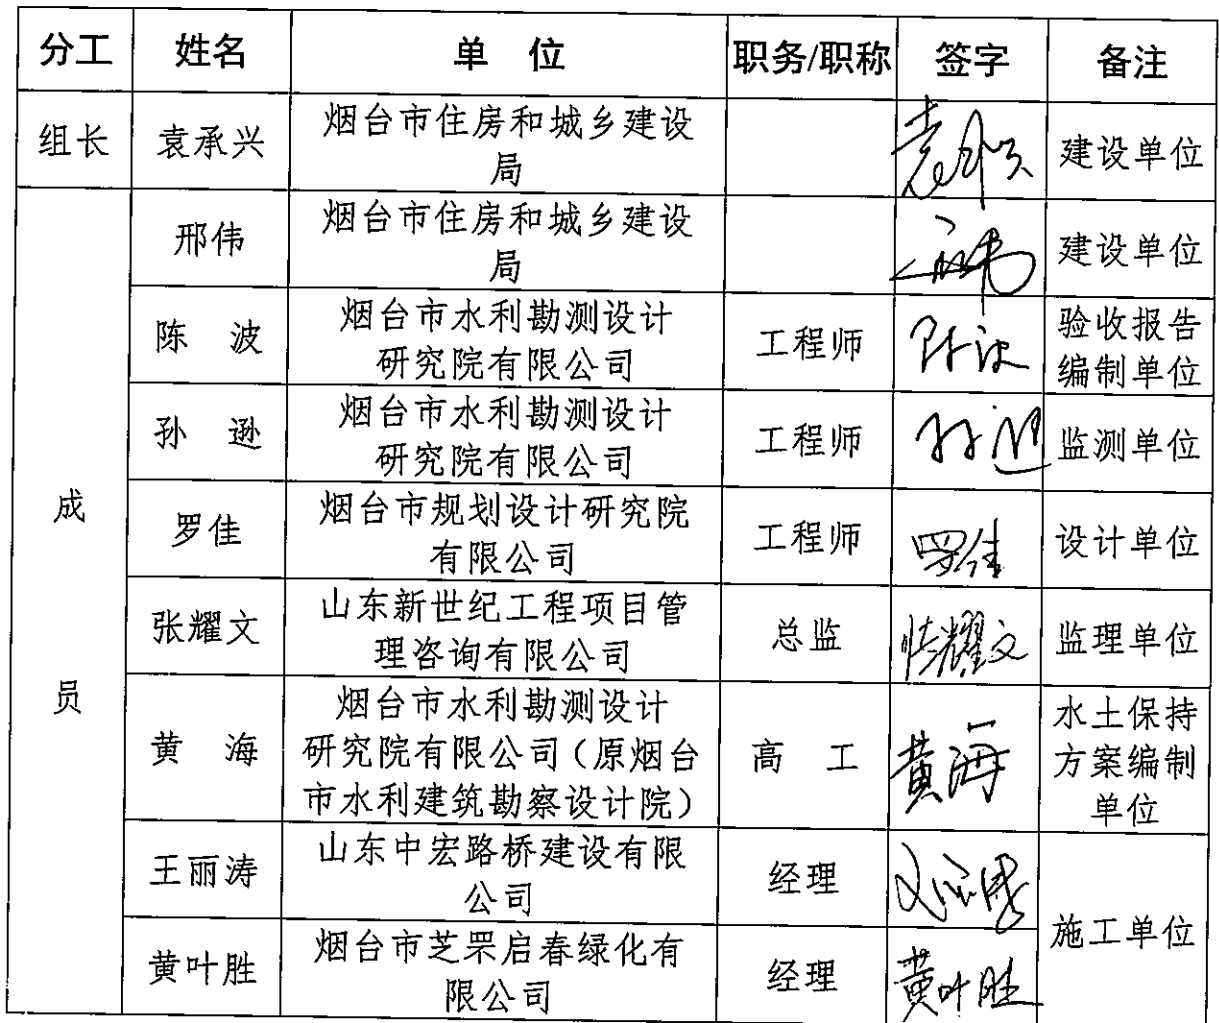 分工 姓名 单 位 职务/职称 签字 备注
组长 袁承兴 烟台市住房和城乡建设
局 建设单位
邢伟 烟台市住房和城乡建设
局 建设单位
陈 波 烟台市水利勘测设计
研究院有限公司 工程师 陈波 验收报告
编制单位
孙 逊 烟台市水利勘测设计
研究院有限公司 工程师 孙逊 监测单位
成
员
罗佳 烟台市规划设计研究院
有限公司 工程师 罗佳 设计单位
张耀文 山东新世纪工程项目管
理咨询有限公司 总监 张耀文 监理单位
黄 海 烟台市水利勘测设计
研究院有限公司（原烟台
市水利建筑勘察设计院） 高 工 黄海 水土保持
方案编制
单位
王丽涛 山东中宏路桥建设有限
公司 经理
黄叶胜 烟台市芝罘启春绿化有
限公司 经理 黄叶胜 施工单位